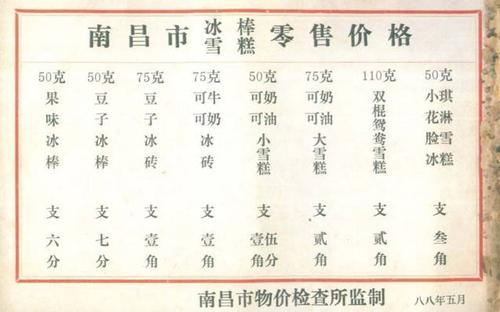 南昌市冰棒雪糕零售价格
50克 果味冰棒 支 六分
50克 豆子冰棒 支 七分
75克 豆子冰砖 支 壹角
75克 可可牛奶冰砖 支 壹角
50克 可可奶油小雪糕 支 壹角伍分
75克 可可奶油大雪糕 支 贰角
110克 双棍鸳鸯雪糕 支 贰角
50克 小花脸冰琪淋雪糕 支 叁角
南昌市物价检查所监制
八八年五月